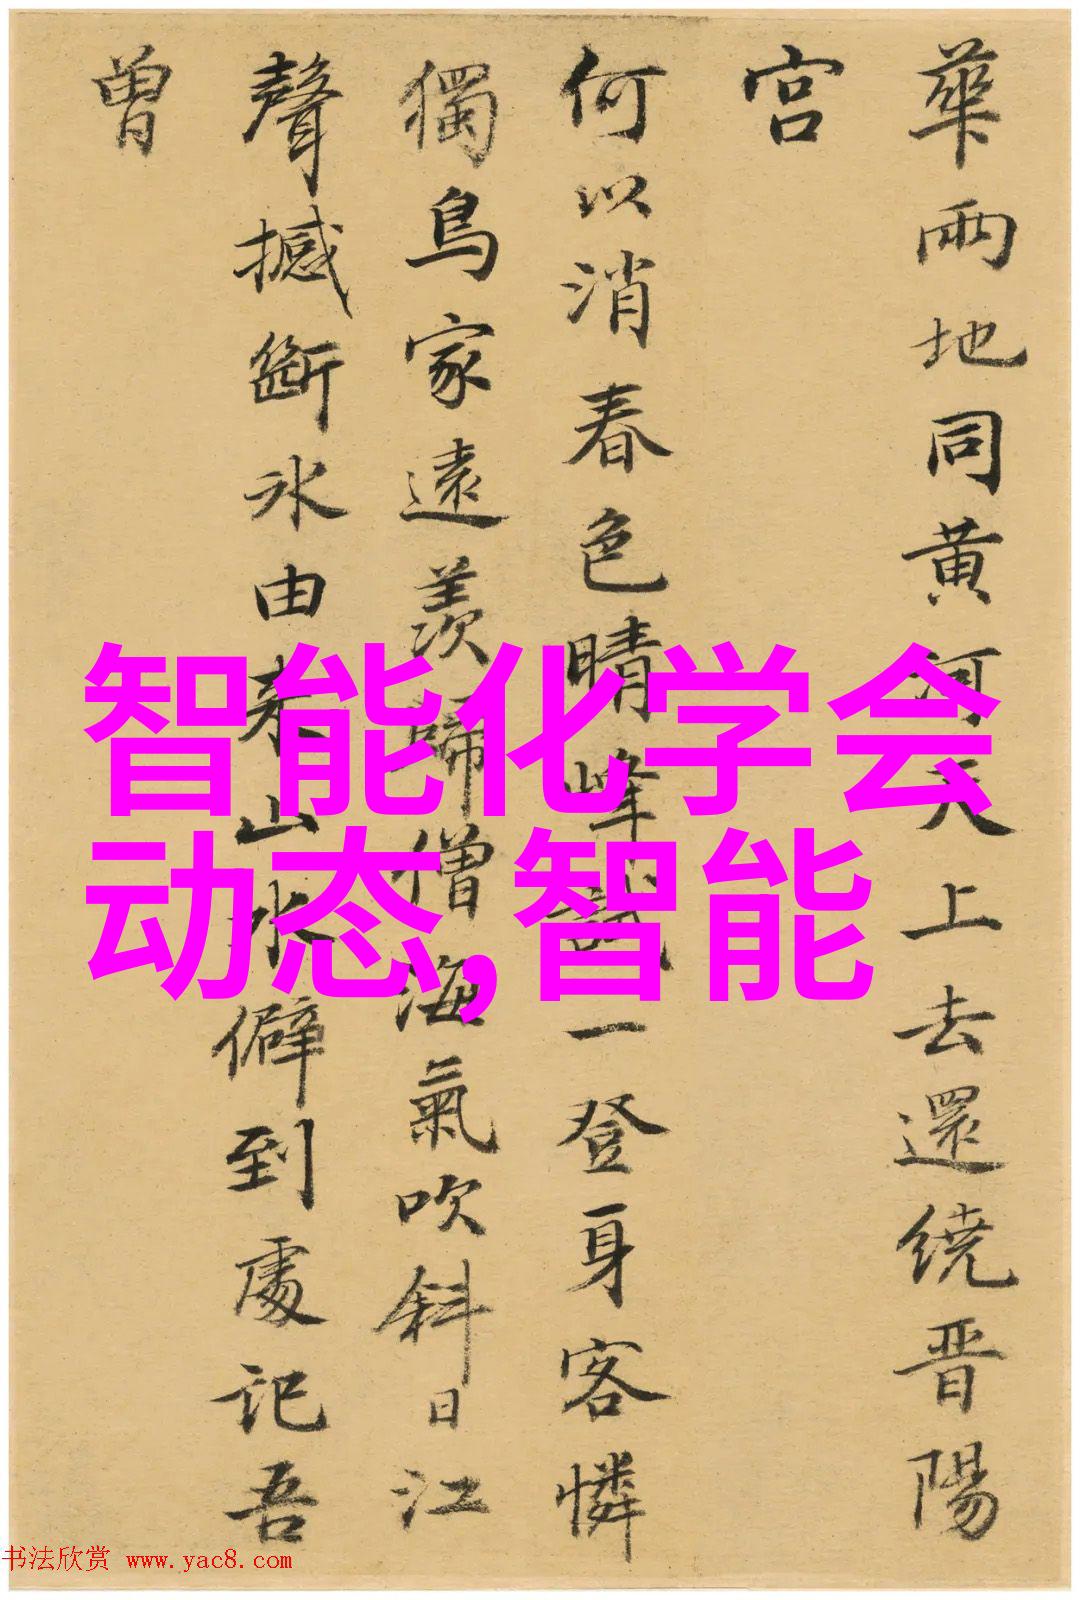 華兩地同黄河天上去還繞晋陽
宫
何以消春色晴峰試一登身客憐
獨鳥家遠羡歸僧海氣吹斜日江
聲撼斷冰由来山水僻到處記吾
曾
智能化学会
动态,智能
书法欣赏 www.yac8.com